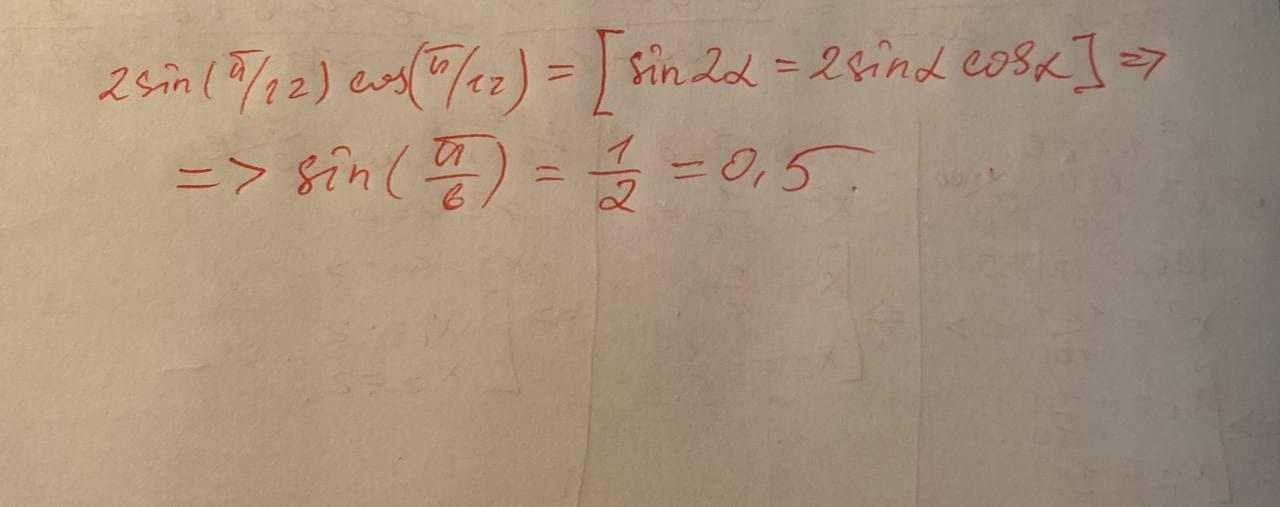 2 sin(π/12) cos(π/12) = [sin2α = 2sinα cosα] =>
=> sin(π/6) = 1/2 = 0,5.